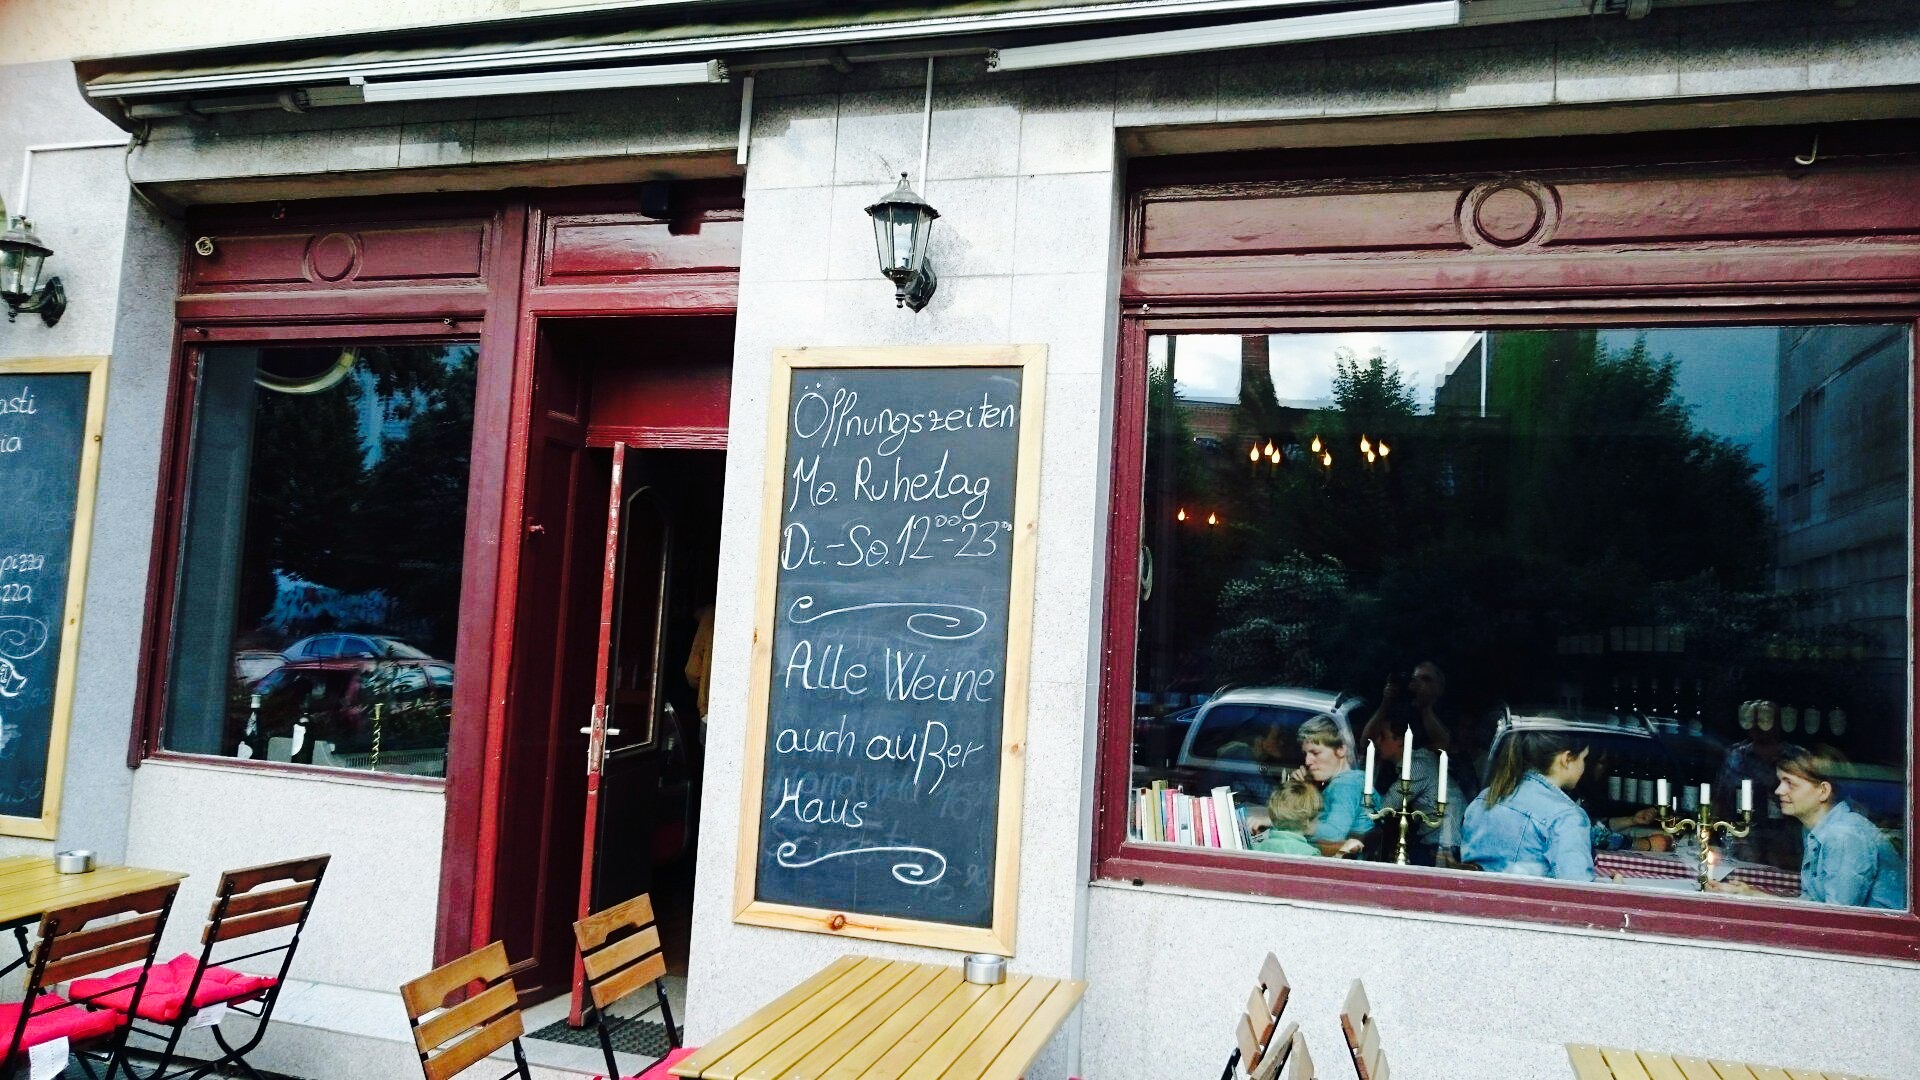 pizza
Öffnungszeiten
Mo. Ruhetag
Di.-So. 12⁰⁰-23⁰⁰
Alle Weine
auch außer
Haus